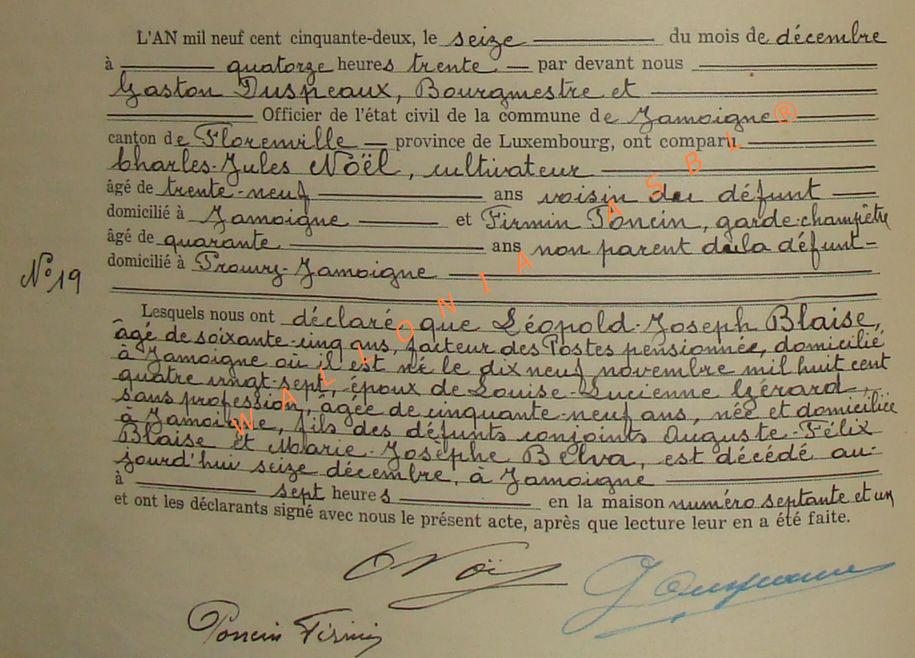 L'AN mil neuf cent cinquante-deux, le seize du mois de décembre
à quatorze heures trente par devant nous
Gaston Duspeaux, Bourgmestre et
Officier de l'état civil de la commune de Jamoigne
canton de Florenville province de Luxembourg, ont comparu
Charles-Jules Noël, cultivateur
âgé de trente-neuf ans voisin du défunt
domicilié à Jamoigne et Firmin Poncin, garde-champêtre
âgé de quarante ans non parent du défunt
domicilié à Prouvy-Jamoigne
N° 19
Lesquels nous ont déclaré que Léopold-Joseph Blaise,
âgé de soixante-cinq ans, facteur des Postes pensionné, domicilié
à Jamoigne où il est né le dix neuf novembre mil huit cent
quatre vingt-sept, époux de Louise-Lucienne Gérard,
sans profession, âgée de cinquante-neuf ans, née et domiciliée
à Jamoigne, fils des défunts conjoints Auguste-Félix
Blaise et Marie-Josephe Belva, est décédé au-
jourd'hui seize décembre, à Jamoigne
à sept heures en la maison numéro septante et un
et ont les déclarants signé avec nous le présent acte, après que lecture leur en a été faite.
Noël
Poncin Firmin
WALLONIA ASBL ®